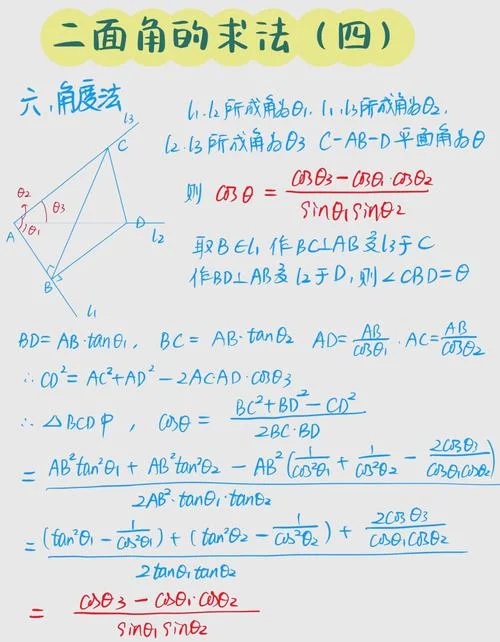 二面角的求法(四)
六、角度法
l₁.l₂所成角为θ₁. l₁.l₃所成角为θ₂.
l₂.l₃所成角为θ₃ C-AB-D平面角为θ
则 cosθ = \frac{cosθ₃-cosθ₁·cosθ₂}{sinθ₁sinθ₂}
取B∈l₁ 作BC⊥AB交l₃于C
作BD⊥AB交l₂于D,则∠CBD=θ
l₃
C
θ₂
θ₃
A
θ₁
D
l₂
B
l₁
BD= AB·tanθ₁, BC= AB·tanθ₂ AD=\frac{AB}{cosθ₁}.AC=\frac{AB}{cosθ₂}
∴CD²=AC²+AD²-2AC·AD·cosθ₃
∴△BCD中, cosθ= \frac{BC²+BD²-CD²}{2BC·BD}
= \frac{AB²tan²θ₁+AB²tan²θ₂-AB²(\frac{1}{cos²θ₁}+\frac{1}{cos²θ₂}-\frac{2cosθ₃}{cosθ₁cosθ₂})}{2AB²·tanθ₁·tanθ₂}
= \frac{(tan²θ₁-\frac{1}{cos²θ₁})+(tan²θ₂-\frac{1}{cos²θ₂})+\frac{2cosθ₃}{cosθ₁cosθ₂}}{2tanθ₁tanθ₂}
= \frac{cosθ₃-cosθ₁·cosθ₂}{sinθ₁sinθ₂}